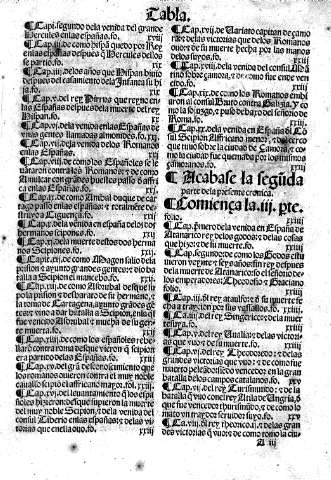 Tabla.
¶ Capi. segundo dela venida del grande
Hercules enlas españas. fo.
¶ Cap. iij. de como hispã quedo por Rey
enlas españas despues q̃ Hercules dellas
se partio. fo.
¶ Cap. iiij. delos años que Hispan biuio
despues del casamiento dela Infanta su hi
ja. fo.
¶ Cap. v. del Rey Pirros que reyno en
las Españas despues dela muerte del rey
Hispan. fo.
¶ Cap. vj. dela venida enlas Españas de
vnas gentes llamados almonides. fo. xx.
¶ Cap. vij. dela venida delos Romanos
enlas Españas. fo.
¶ Cap. viij. de como los Españoles se le
uantaron contra los Romanos: e de como
Amilcar con grandes huestes passo de affri
ca enlas españas. fo.
¶ Cap. ix. de como Anibal duque de car
tago passo enlas españas: e totalmẽte des
truyo a Ciguença. fo.
¶ Cap. x. dela venida en españa delos dos
hermanos scipiones. fo.
¶ Cap. xj. dela muerte destos dos herma
nos Scipiones. fo.
¶ Cap. xij. de como Magon salio dela
prision e ayunto grandes gentes: e dio ba
talla a Scipion el mancebo. fo.
¶ Cap. xiij. de como Asdrubal de q̃ supo
la prision e desbarato de su hermano, e
la toma de Cartagena, ayunto grãdes gẽ
tes: e vino a dar batalla a Scipion, enla q̃l
fue vencido Asdrubal e mucha de su gen
te muerta. fo.
¶ Cap. xiiij. de como los españoles rebe
laron contra roma desque vieron q̃ scipion
era partido delas Españas. fo.
¶ Cap. xv. del grã desconoscimiento que
los romanos ouieron contra el muy noble
cauallero scipio el affricano mayor. fol. xxiij.
¶ Cap. xvj. del leuantamiento q̃ los espa
ñoles hizieron desque supieron la muerte
del muy noble Scipion, e dela venida del
consul Tiberio enlas españas: e delas vic
torias que enella ouo. fo.
¶ Cap. xvij. de Uariato capitan de çamo
ra: e delas victorias que delos Romanos
ouo: e de su muerte hecha por las manos
delos suyos. fo.
¶ Cap. xviij. dela venida del consul Mã
cino sobre çamora, e de como fue ende ven
cido. fo.
¶ Cap. xix. de como los Romanos embia
ron al consul Bruto contra Galizia, e co
mo la sojuzgo, e puso debaxo del señorio de
Roma. fo.
¶ Cap. xx. dela venida en España del cõ
sul Scipion Affricano menor, e del cerco
que tuuo sobre la ciudad de Çamora, e co
mo la ciudad fue quemada por los mismos
çamoranos. fo.
¶ Acabase la segũda
parte dela presente cronica.
¶ Comiença la .iij. pte.
folio.
¶ Cap. primero dela venida en España de
Atanarico rey delos godos: e delas cosas
que hizo: e de su muerte. fo.
¶ Cap. segundo de como los Godos estu
uieron veynte e seys años sin rey despues
dela muerte de Atanarico so el señorio de
los emperadores: Theodosio e Graciano
folio.
¶ Cap. iij. del rey ataulfo: e de su muerte he
cha a traycion por sus vassallos. fo.
¶ Cap. iiij. del rey Singerico: e dela muer
te suya. fo.
¶ Cap. v. del rey Uualia: e delas victori
as que vuo: e de su muerte. fo.
¶ Cap. vj. del rey Theodoredo: e delas
grandes victorias que vuo: e de como fue
muerto peleãdo siendo vencedor en la gran
batalla delos campos catalanos.
¶ Cap. vij. del rey Turismundo: e dela
batalla q̃ vuo con el rey Atila de Ungria, e
que fue vencedor thurismundo, e de como lo
mato vn traydor seruidor suyo. fo.
¶ Cap. viij. del rey theodorico .ij. e delas gran
des victorias q̃ vuo: e de su muerte en la ciu
A iij